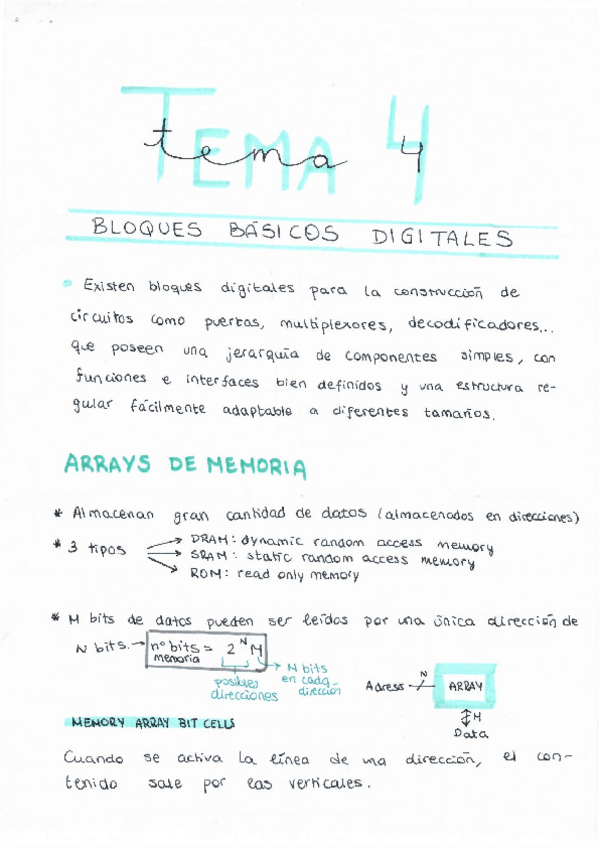 TEMA 4
tema 4
BLOQUES BÁSICOS DIGITALES
Existen bloques digitales para la construcción de
circuitos como puertas, multiplexores, decodificadores...
que poseen una jerarquía de componentes simples, con
funciones e interfaces bien definidos y una estructura re-
gular fácilmente adaptable a diferentes tamaños.
ARRAYS DE MEMORIA
* Almacenan gran cantidad de datos (almacenados en direcciones)
* 3 tipos
DRAM: dynamic random access memory
SRAM: static random access memory
ROM: read only memory
* M bits de datos pueden ser leídos por una única dirección de
N bits. → nº bits memoria = 2^N M
posibles direcciones
M bits en cada dirección
Adress N ARRAY
M
Data
MEMORY ARRAY BIT CELLS
Cuando se activa la línea de una dirección, el con-
tenido sale por las verticales.